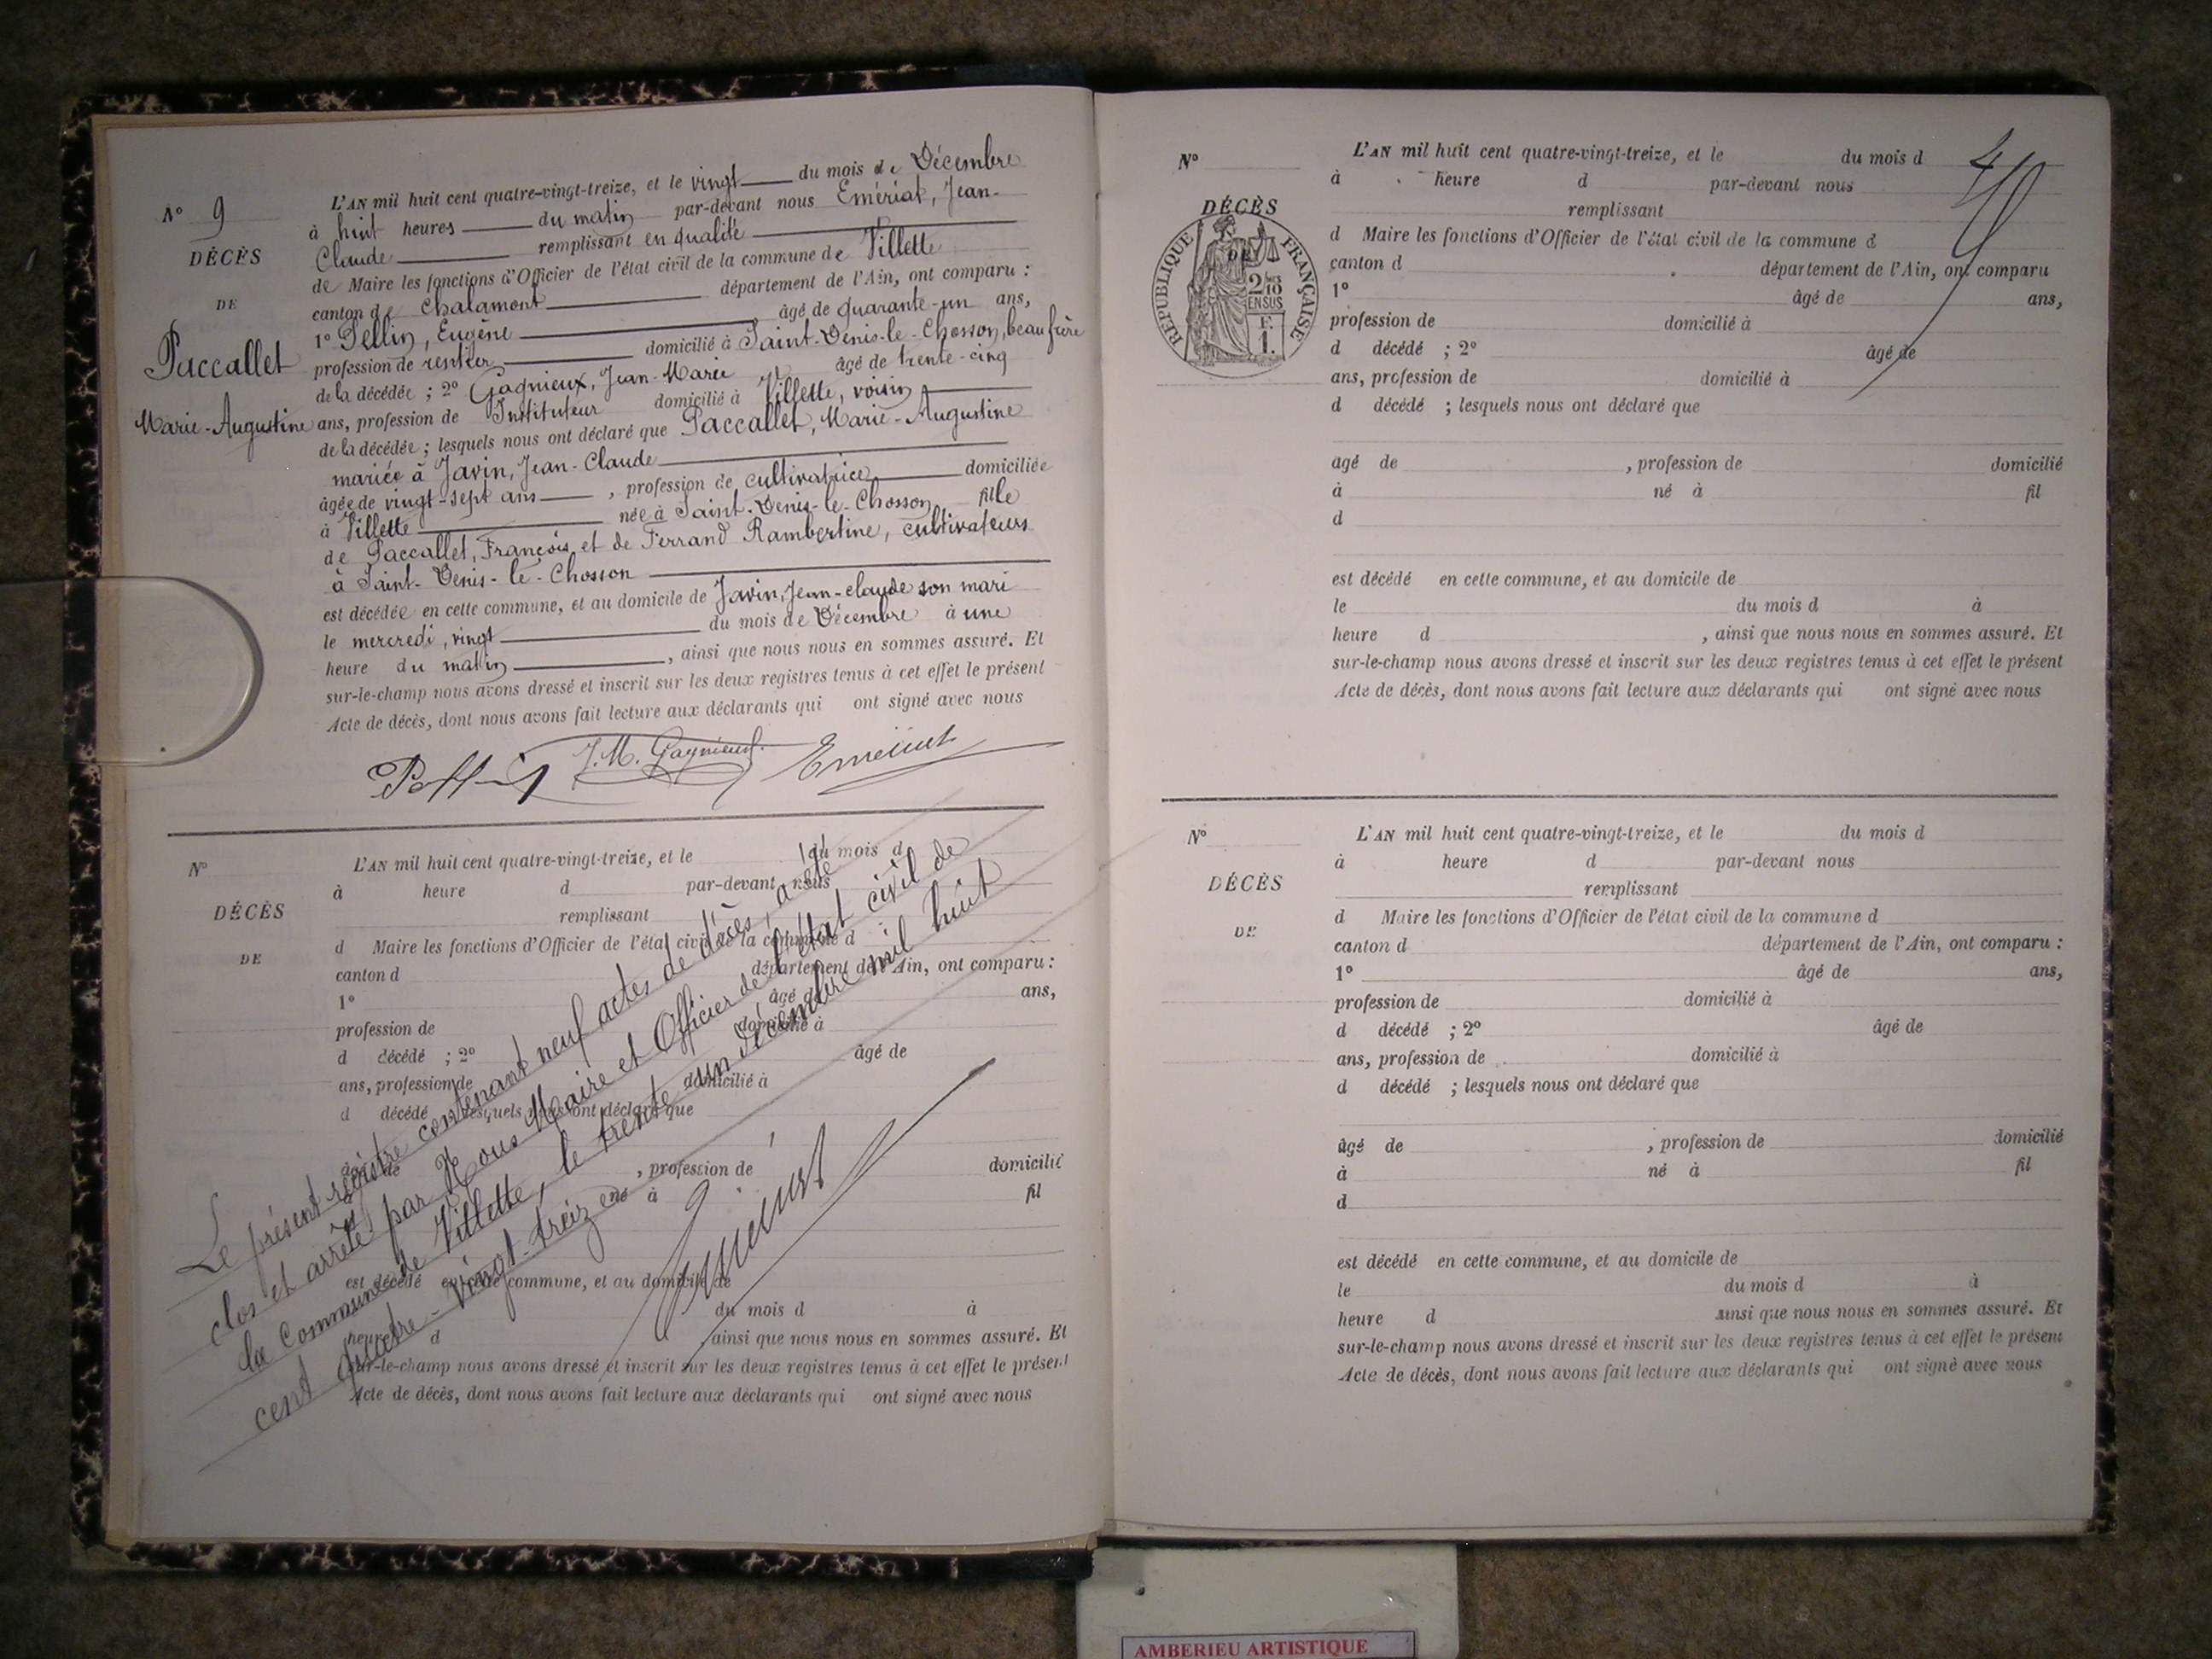 N° 9
DÉCÈS
DE
Paccallet
Marie-Augustine
L'AN mil huit cent quatre-vingt-treize, et le vingt du mois de Décembre
à huit heures du matin par-devant nous Emériat, Jean-
Claude remplissant en qualité
de Maire les fonctions d'Officier de l'état civil de la commune de Villette
canton de Chalamont département de l'Ain, ont comparu :
1° Pellin, Eugène âgé de quarante-un ans,
profession de rentier domicilié à Saint-Denis-le-Chosson, beau frère
de la décédée ; 2° Gagnieux, Jean-Marie âgé de trente-cinq
ans, profession de Instituteur domicilié à Villette, voisin
de la décédée ; lesquels nous ont déclaré que Paccallet, Marie-Augustine
mariée à Javin, Jean-Claude
âgée de vingt-sept ans, profession de cultivatrice domiciliée
à Villette née à Saint-Denis-le-Chosson fille
de Paccallet, François et de Ferrand Rambertine, cultivateurs
à Saint-Denis-le-Chosson
est décédée en cette commune, et au domicile de Javin, Jean-claude son mari
le mercredi, vingt du mois de Décembre à une
heure du matin, ainsi que nous nous en sommes assuré. Et
sur-le-champ nous avons dressé et inscrit sur les deux registres tenus à cet effet le présent
Acte de décès, dont nous avons fait lecture aux déclarants qui ont signé avec nous
J. M. Gagnieux
N°
DÉCÈS
DE
L'AN mil huit cent quatre-vingt-treize, et le du mois d
à heure d par-devant nous
remplissant
d Maire les fonctions d'Officier de l'état civil de la commune d
canton d département de l'Ain, ont comparu :
1° âgé de ans,
profession de domicilié à
d décédé ; 2° âgé de
ans, profession de domicilié à
d décédé ; lesquels nous ont déclaré que
âgé de , profession de domicilié
né à fil
est décédé en cette commune, et au domicile de
du mois d à
heure d , ainsi que nous nous en sommes assuré. Et
sur-le-champ nous avons dressé et inscrit sur les deux registres tenus à cet effet le présent
Acte de décès, dont nous avons fait lecture aux déclarants qui ont signé avec nous
Le présent registre contenant neuf actes de décès, a été
clos et arrêté par Nous Maire et Officier de l'état civil de
la Commune de Villette, le trente-un Décembre mil huit
cent quatre-vingt-treize
N°
DÉCÈS
RÉPUBLIQUE FRANÇAISE
2/10 EN SUS
F. 1.
L'AN mil huit cent quatre-vingt-treize, et le du mois d
à heure d par-devant nous
remplissant
d Maire les fonctions d'Officier de l'état civil de la commune d
canton d département de l'Ain, ont comparu
1° âgé de ans,
profession de domicilié à
d décédé ; 2° âgé de
ans, profession de domicilié à
d décédé ; lesquels nous ont déclaré que
agé de , profession de domicilié
à né à fil
d
est décédé en cette commune, et au domicile de
le du mois d à
heure d , ainsi que nous nous en sommes assuré. Et
sur-le-champ nous avons dressé et inscrit sur les deux registres tenus à cet effet le présent
Acte de décès, dont nous avons fait lecture aux déclarants qui ont signé avec nous
N°
DÉCÈS
DE
L'AN mil huit cent quatre-vingt-treize, et le du mois d
à heure d par-devant nous
remplissant
d Maire les fonctions d'Officier de l'état civil de la commune d
canton d département de l'Ain, ont comparu :
1° âgé de ans,
profession de domicilié à
d décédé ; 2° âgé de
ans, profession de domicilié à
d décédé ; lesquels nous ont déclaré que
âgé de , profession de domicilié
à né à fil
d
est décédé en cette commune, et au domicile de
le du mois d à
heure d ainsi que nous nous en sommes assuré. Et
sur-le-champ nous avons dressé et inscrit sur les deux registres tenus à cet effet le présent
Acte de décès, dont nous avons fait lecture aux déclarants qui ont signé avec nous
AMBERIEU ARTISTIQUE